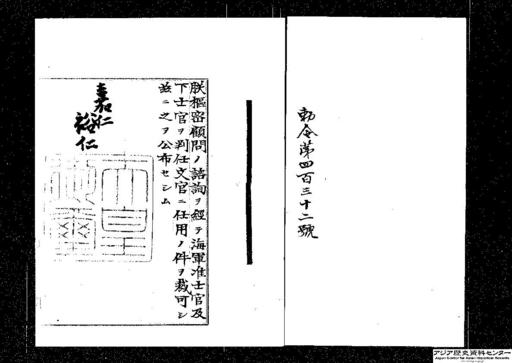 勅令第四百三十二號
朕樞密顧問ノ諮詢ヲ經テ海軍准士官及
下士官ヲ判任文官ニ任用ノ件ヲ裁可シ
茲ニ之ヲ公布セシム
嘉仁
裕仁
アジア歴史資料センター
Japan Center for Asian Historical Records